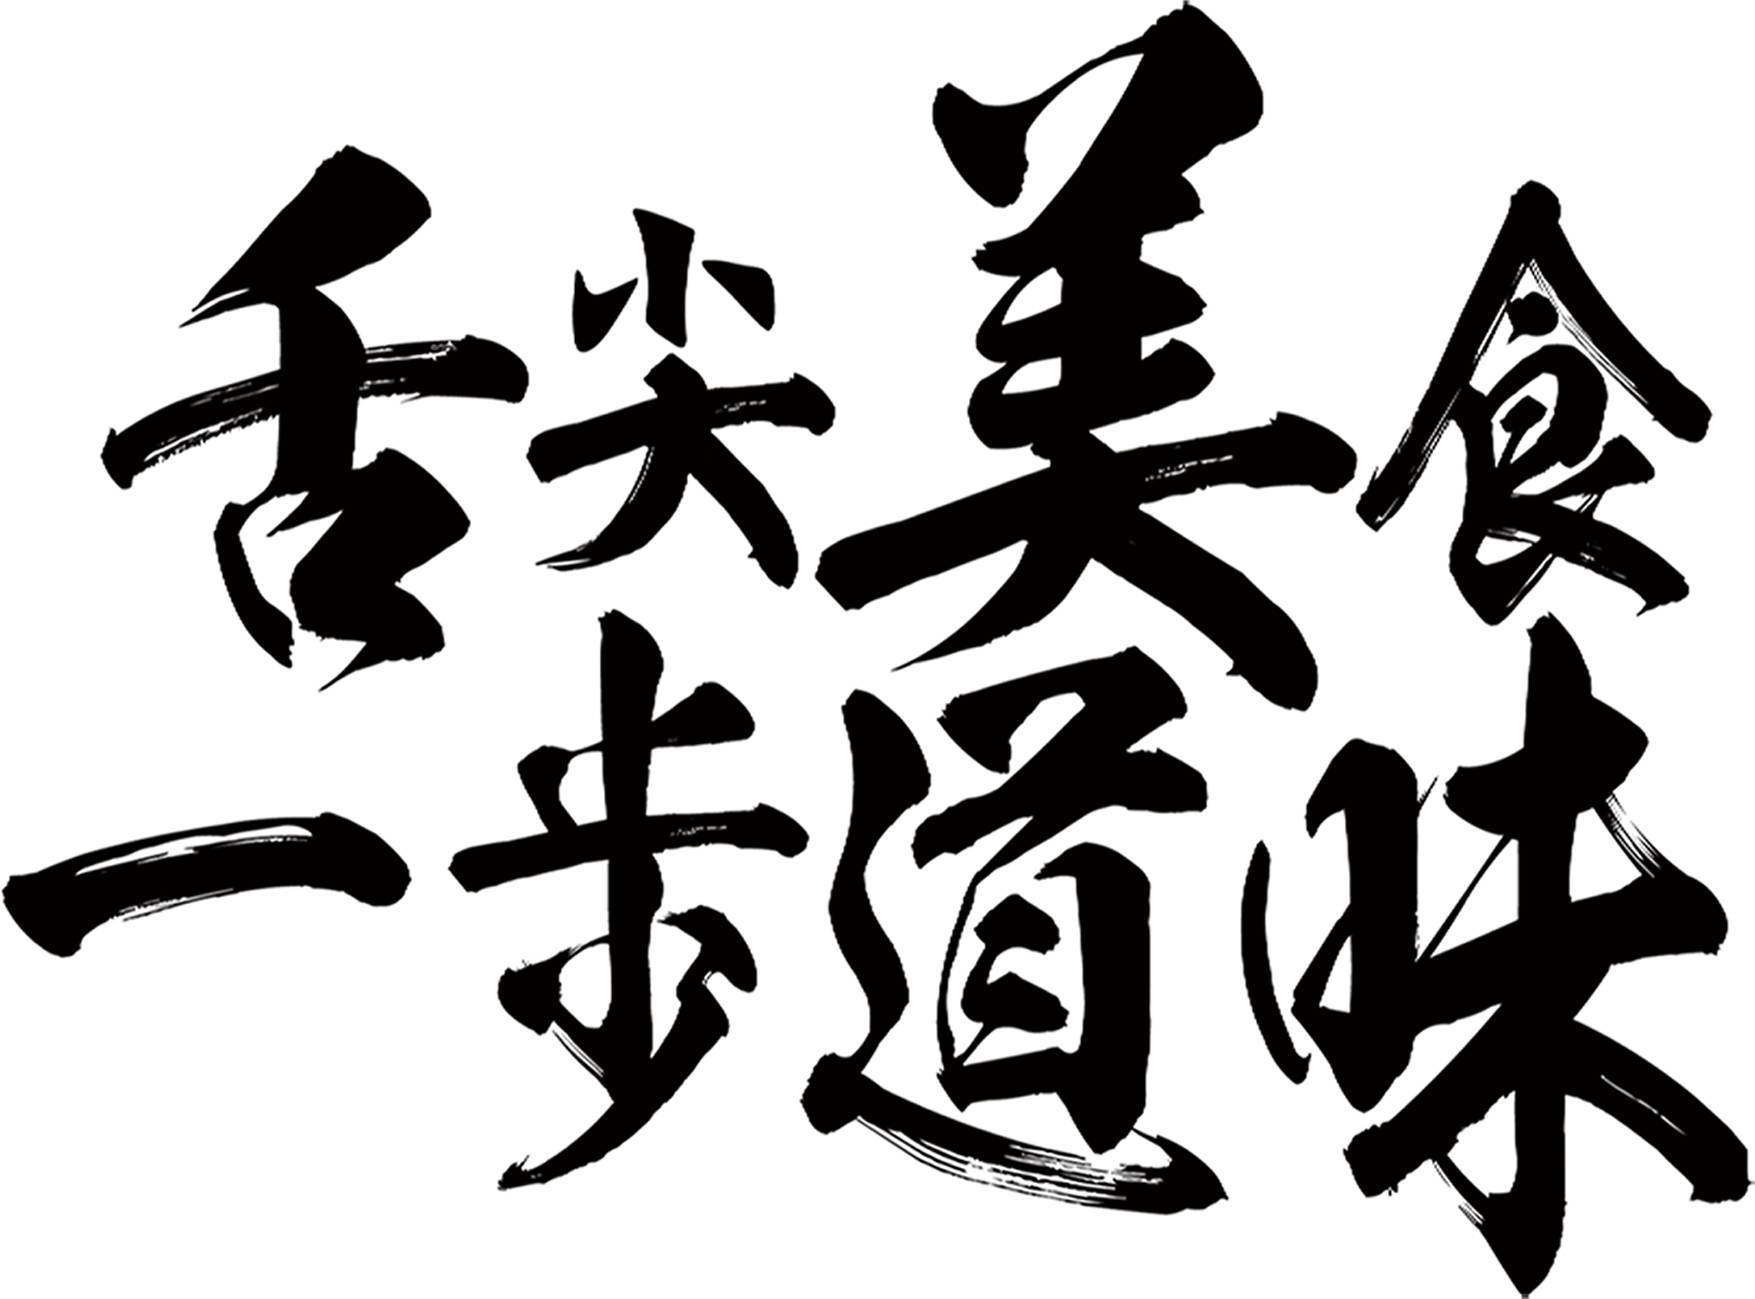 舌尖美食
一步道味